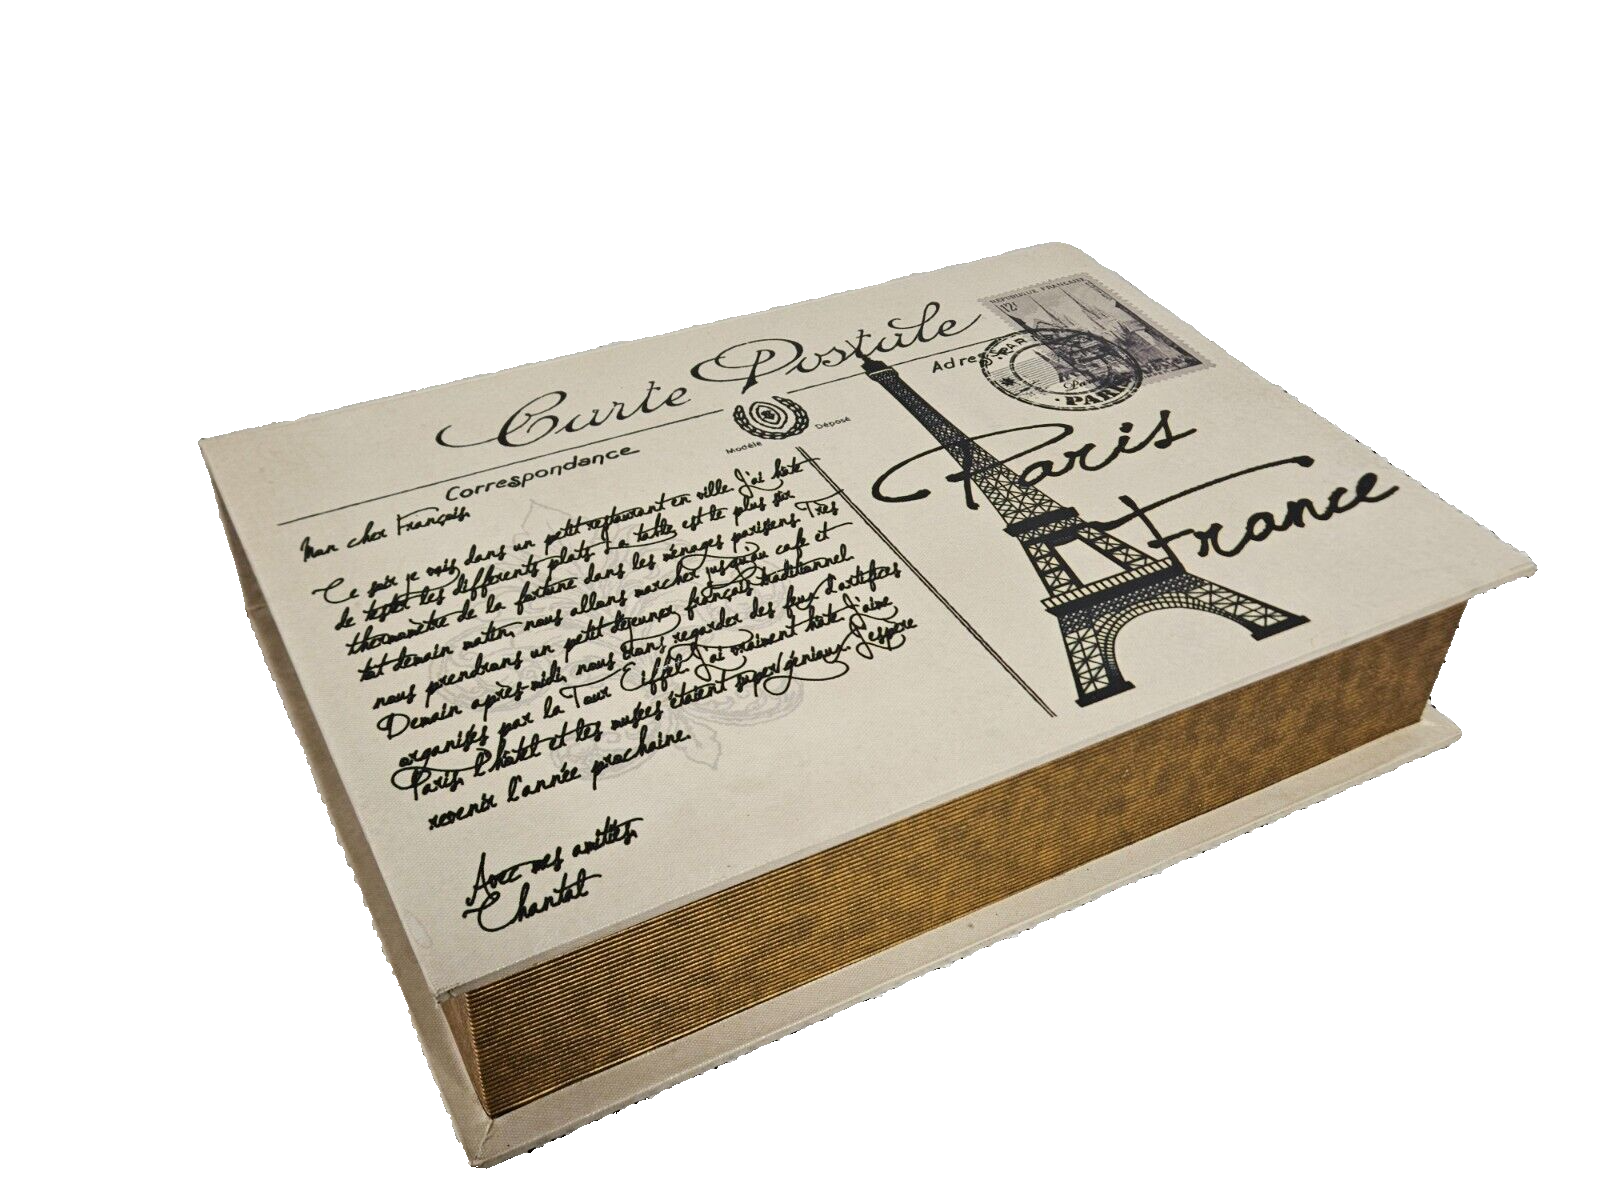 Carte Postale
REPUBLIQUE FRANÇAISE
12f
Correspondance
Adres
PAR
Modèle Déposé
PARIS
Paris
France
Mon cher François,
Ce soir je vais dans un petit restaurant en ville. J'ai hâte
de tester les différents plats. La table est le plus sûr
thermomètre de la fortune dans les ménages parisiens. Très
tôt demain matin, nous allons marcher jusqu'au café et
nous prendrons un petit déjeuner français traditionnel.
Demain après-midi, nous irons regarder des feux d'artifices
organisés par la Tour Eiffel. J'ai vraiment hâte. J'aime
Paris, l'hôtel et les musées étaient super/géniaux. J'espère
revenir l'année prochaine.
Avec mes amitiés,
Chantal